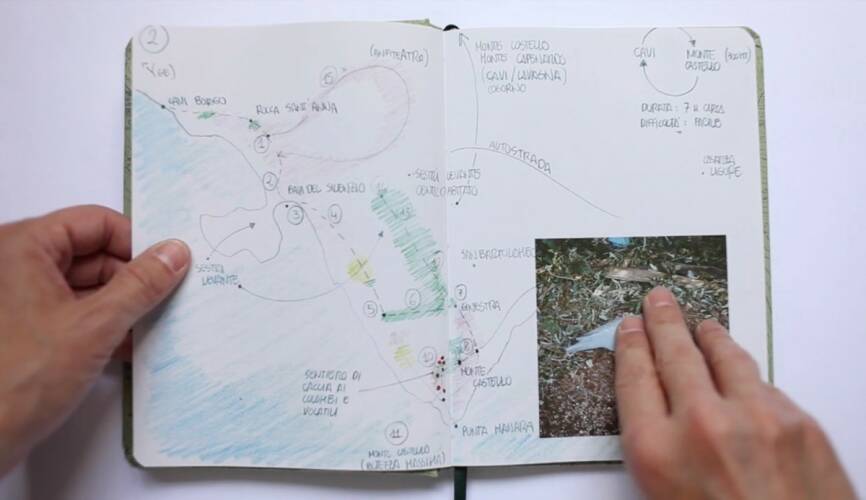 2
(GE)
CAVI BORGO
ROCCA SANT'ANNA
(ANFITEATRO)
15
1
2
BAIA DEL SILENZIO
3
4
SESTRI
LEVANTE
5
6
SENTIERO DI
CACCIA AI
COLOMBI E
VOLATILI
10
11
MONTE CASTELLO
MONTE CASTELLO
MONTE CAPENARDO
(CAVI / LAVAGNA)
AUTOSTRADA
SESTRI LEVANTE
CENTRO ABITATO
SAN BARTOLOMEO
7
GINESTRA
8
MONTE
CASTELLO
PUNTA MANARA
CAVI
MONTE
CASTELLO
DURATA : 7 H CIRCA
DIFFICOLTÀ :
LIGURE